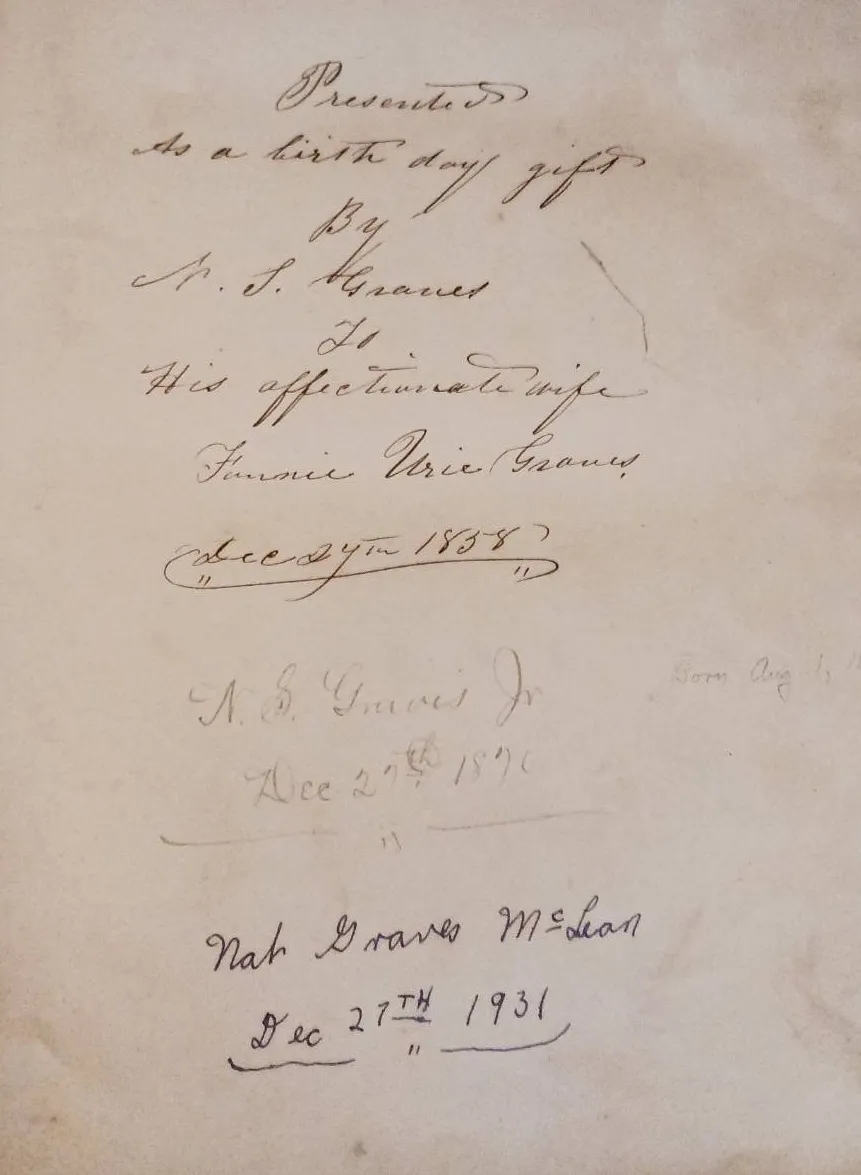 Presented
As a birth day gift
By
N. S. Graves
To
His affectionate wife
Fannie Urie Graves,
Dec 27th 1858
N. S. Graves Jr
Born Aug 1,
Dec 27th 187
Nat Graves McLean
Dec 27TH 1931